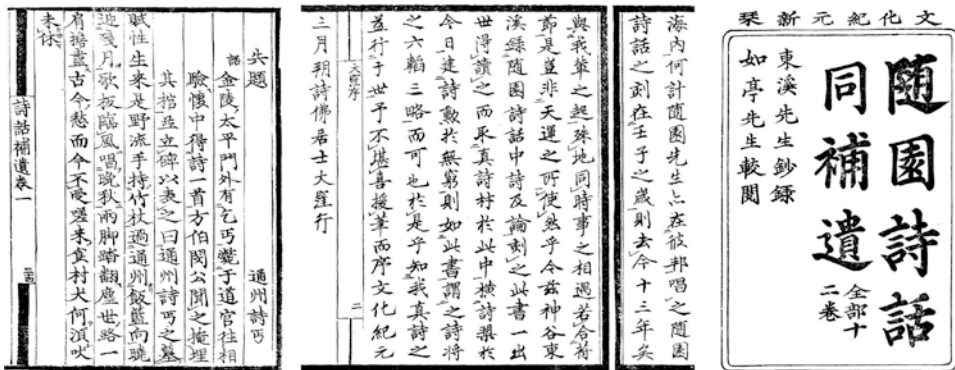 文化紀元新栞
隨園詩話
同補遺
全部十
二卷
東溪先生鈔録
如亭先生較閲
海內何計隨園先生亦在彼邦唱之隨園
詩話之刻在壬子之歲則去今十三年矣
與我輩之起殊地同時事之相遇若合符
節是豈非天運之所使然乎今茲神谷東
溪錄隨園詩話中詩及論刻之此書一出
世得讀之而采真詩材於此中橫詩槊於
今日建詩勲於無窮則如此書謂之詩將
之六韜三略而可也於是乎知我真詩之
益行于世予不堪喜援筆而序文化紀元
三月朔詩佛居士大窪行
大窪序 二
失題 通州詩丐
話金陵太平門外有乞丐斃于道官往相
驗懷中得詩一首方伯閔公聞之掩埋
其棺並立碑以表之曰通州詩丐之墓
賦性生來是野流手持竹杖過通州飯籃向曉
迎殘月歌板臨風唱晚秋兩脚踏翻塵世路一
肩擔盡古今愁而今不受嗟來食村犬何須吠
未休
詩話補遺卷一